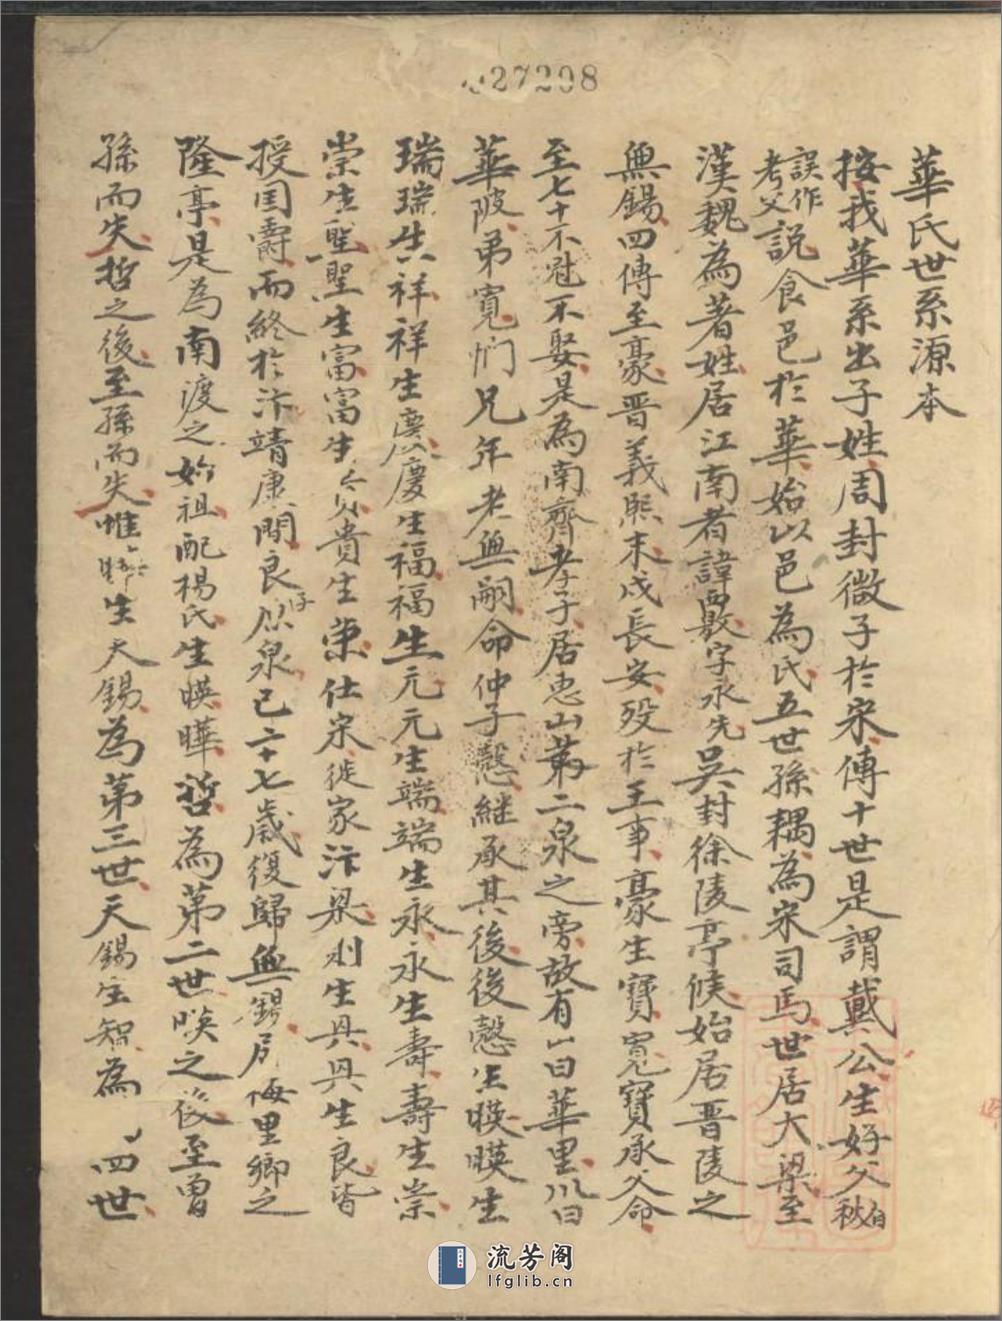 27298
華氏世系源本
按我華系出子姓周封微子於宋傳十世是謂戴公生好父秋白
誤作考父說食邑於華始以邑為氏五世孫耦為宋司馬世居大梁至
漢魏為著姓居江南者諱覈字永先吳封徐陵亭候始居晋陵之
無錫四傳至豪晋義熙末戍長安歿於王事豪生寶寬寶承父命
至七十不冠不娶是為南齊孝子居惠山第二泉之旁故有山曰華里川曰
華陂弟寬憫兄年老無嗣命仲子慤繼承其後後慤生暎暎生
瑞瑞生祥祥生慶慶生福福生元元生端端生永永生壽壽生崇
崇生聖聖生富富生貴貴生榮仕宋徙家汴梁利生丹丹生良皆
授国爵而終於汴靖康間良原泉已六十七歲復歸無錫梅里鄉之
隆亭是為南渡之始祖配楊氏生暎曄哲為第二世暎之後至曾
孫而失哲之後至孫而失惟曄生天錫為第三世天錫生智為四世
流芳阁
lfglib.cn